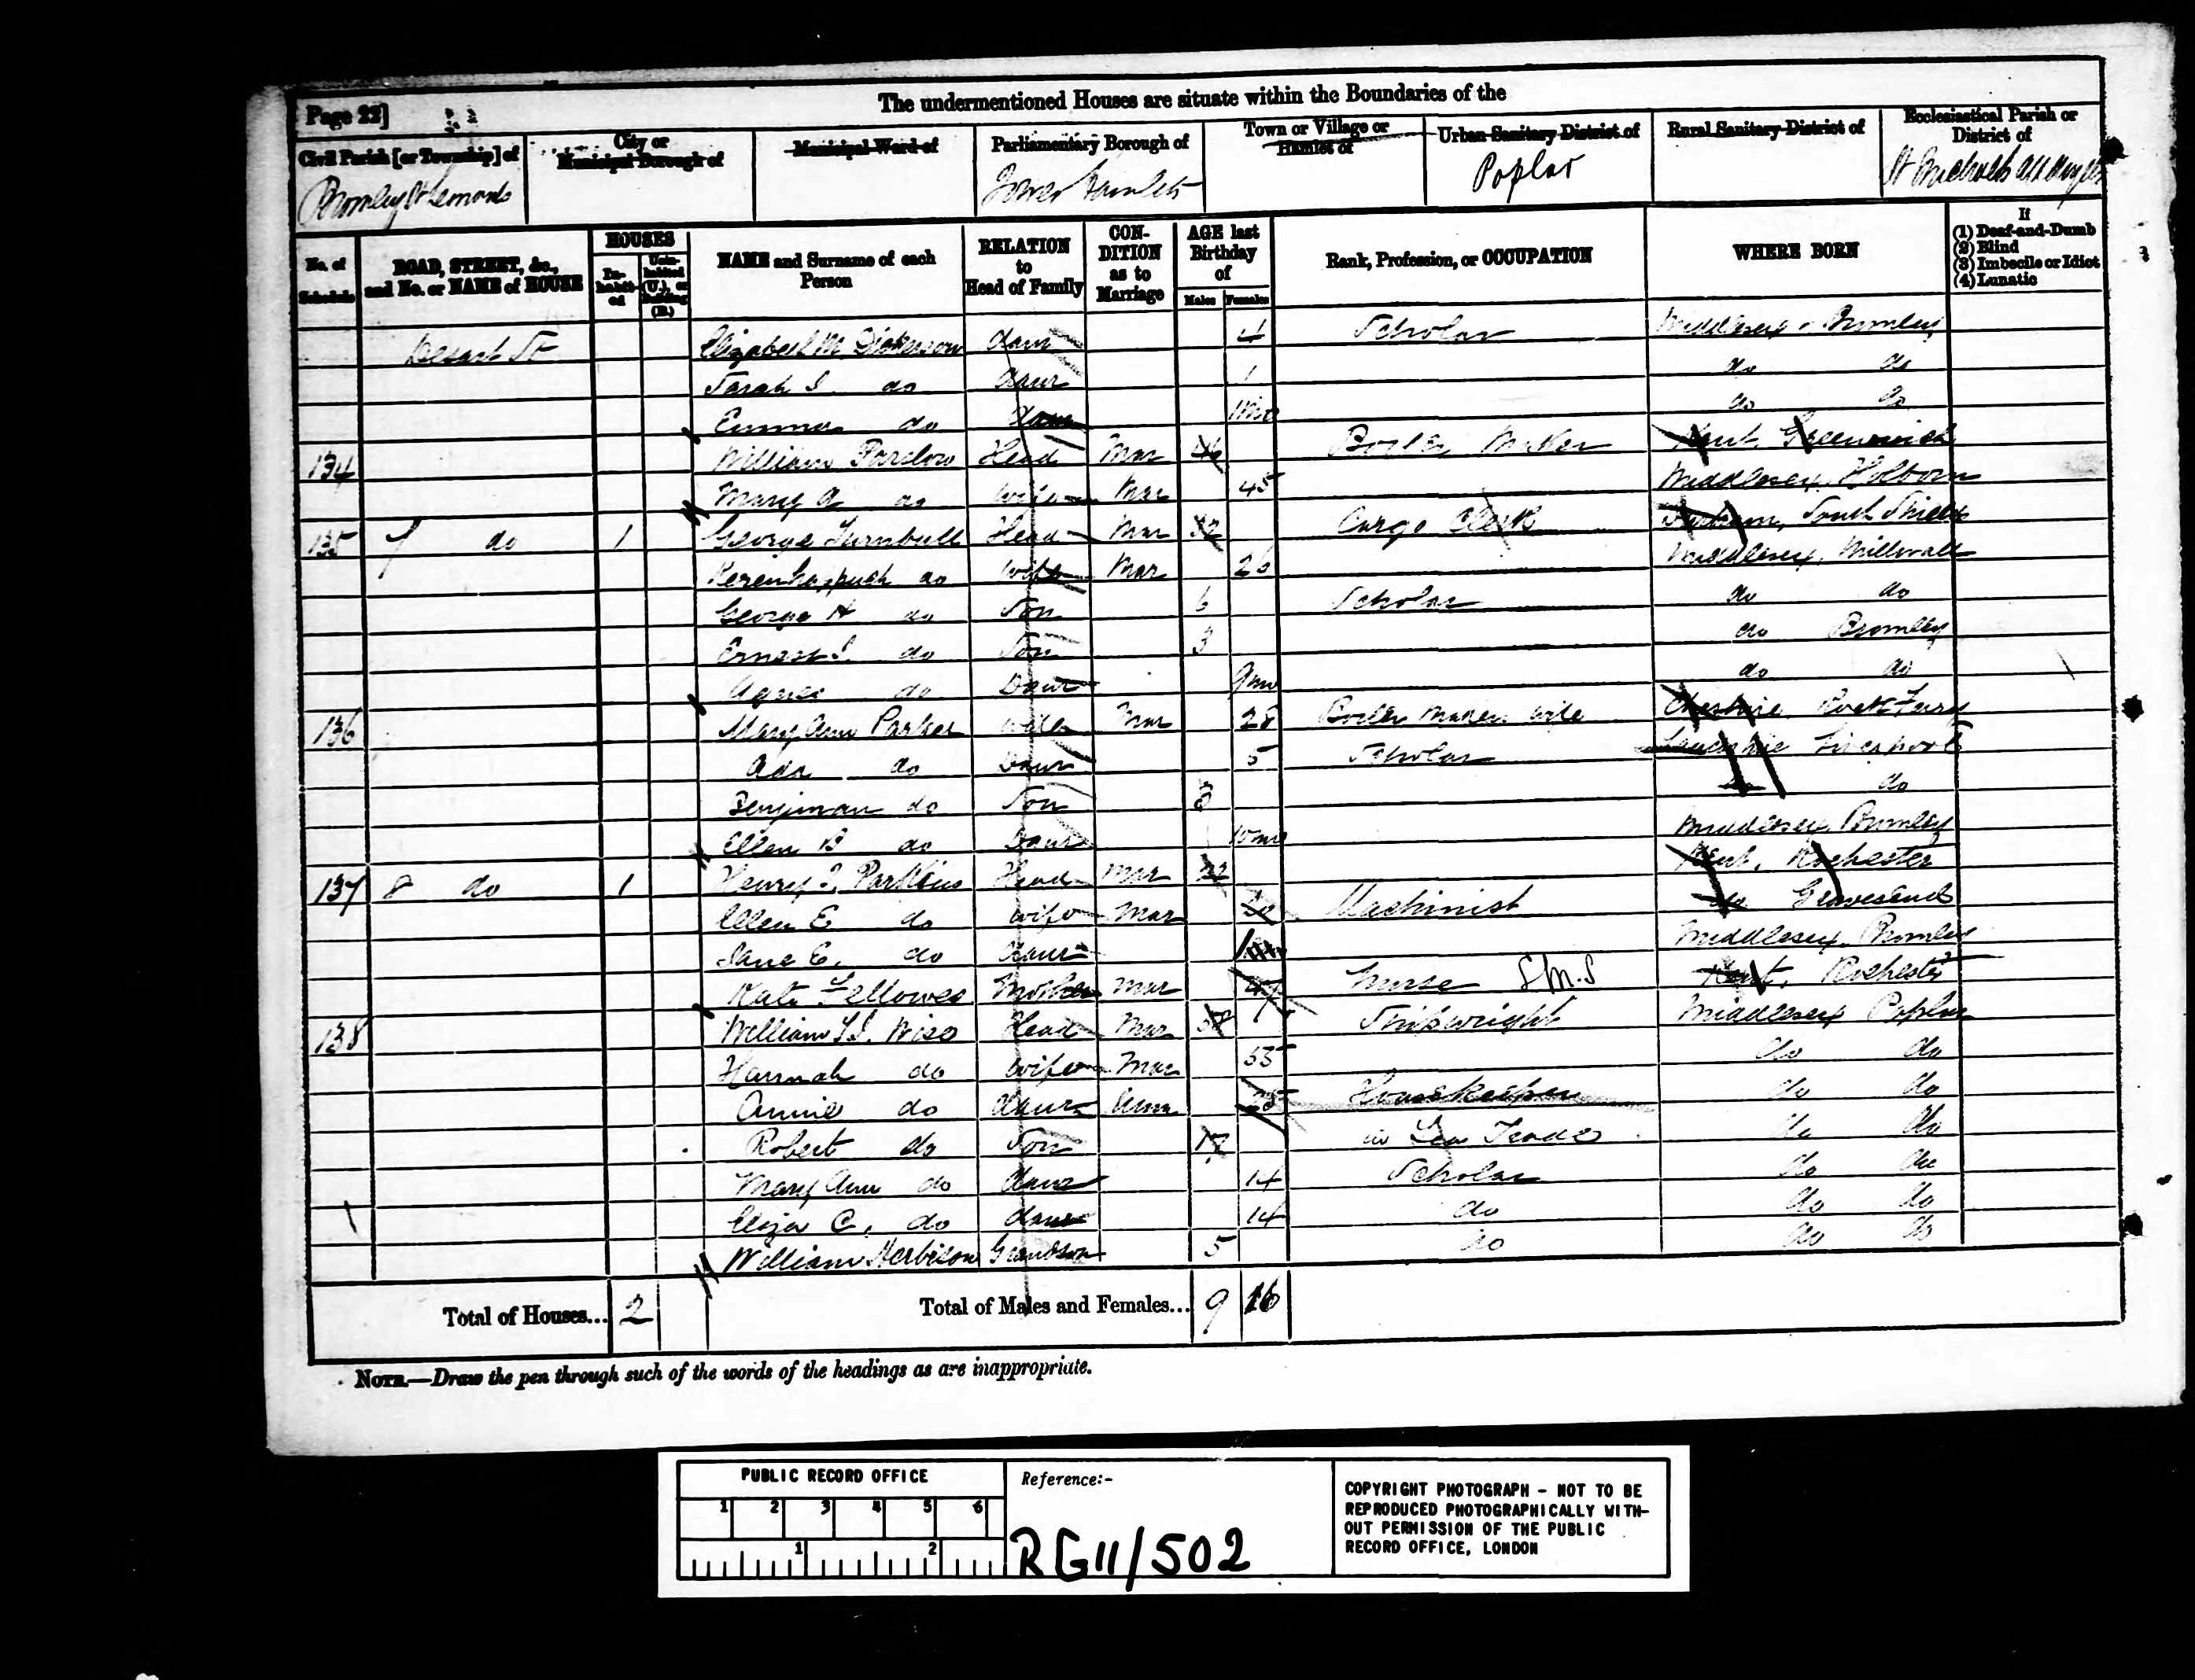 Page 22]
The undermentioned Houses are situate within the Boundaries of the
Civil Parish [or Township] of City or Municipal Borough of Municipal Ward of Parliamentary Borough of Town or Village or Hamlet of Urban Sanitary District of Rural Sanitary District of Ecclesiastical Parish or District of
Bromley St Leonards Tower Hamlets Poplar St Michael & All Angels
No. of Schedule ROAD, STREET, &c., and No. or NAME of HOUSE HOUSES Inhabited Uninhabited (U.), or Building (B.) NAME and Surname of each Person RELATION to Head of Family CONDITION as to Marriage AGE last Birthday of Males Females Rank, Profession, or OCCUPATION WHERE BORN If (1) Deaf-and-Dumb (2) Blind (3) Imbecile or Idiot (4) Lunatic
St Elizabeth M. Dickerson daur 4 Scholar Middlesex Bromley
Sarah do daur 1 do do
Emma do daur do do
134 William Parslow Head Mar 46 Boiler Maker Kent Greenwich
Mary A do wife Mar 45 Middlesex Holborn
135 7 do 1 George Turnbull Head Mar 32 Cargo Clerk Durham, South Shields
Kerenhappuch do wife Mar 26 Middlesex, Millwall
George H do Son 6 Scholar do do
Ernest J. do Son 3 do Bromley
Agnes do Daur 9mo do do
136 Mary Ann Parker wife Mar 28 Boiler Makers wife Cheshire Rock Ferry
Ada do Daur 5 Scholar Lancashire Liverpool
Benjiman do Son 3 do do
Ellen B do Daur 10mo Middlesex Bromley
137 8 do 1 Henry J. Parkins Head Mar 22 Kent, Rochester
Ellen E do wife Mar 20 Machinist do Gravesend
Jane E. do daur Middlesex Bromley
Kate Fellowes Mother Mar Nurse S.M.S Kent, Rochester
138 William Wise Head Mar 58 Shipwright Middlesex Poplar
Hannah do wife Mar 55 do do
Annie do daur Unm 25 Housekeeper do do
Robert do Son 17 in Tea Trade do do
Mary Ann do daur 14 Scholar do do
Eliza C. do daur 14 do do do
William Herbison Grandson 5 do do do
Total of Houses... 2 Total of Males and Females... 9 16
NOTE.—Draw the pen through such of the words of the headings as are inappropriate.
PUBLIC RECORD OFFICE
1 2 3 4 5 6
1 2
Reference:-
RG11/502
COPYRIGHT PHOTOGRAPH - NOT TO BE
REPRODUCED PHOTOGRAPHICALLY WITH-
OUT PERMISSION OF THE PUBLIC
RECORD OFFICE, LONDON